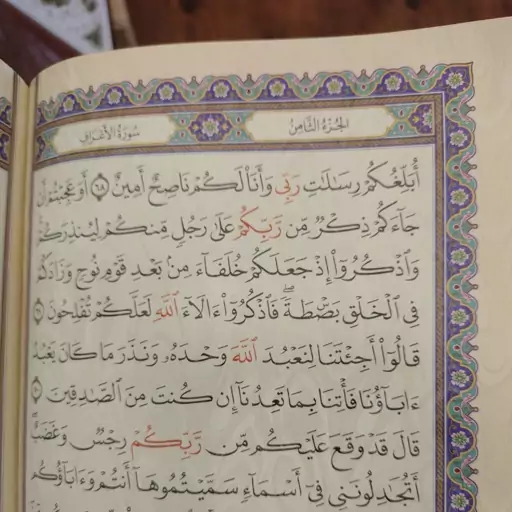 سُورَةُ الأَعْرَافِ
الجُزْءُ الثَّامِنُ
أُبَلِّغُكُمْ رِسَٰلَٰتِ رَبِّي وَأَنَا۠ لَكُمْ نَاصِحٌ أَمِينٌ ٦٨ أَوَعَجِبْتُمْ أَن
جَآءَكُمْ ذِكْرٌ مِّن رَّبِّكُمْ عَلَىٰ رَجُلٍ مِّنكُمْ لِيُنذِرَكُمْ
وَٱذْكُرُوٓا۟ إِذْ جَعَلَكُمْ خُلَفَآءَ مِنۢ بَعْدِ قَوْمِ نُوحٍ وَزَادَكُمْ
فِي ٱلْخَلْقِ بَصْۜطَةً ۖ فَٱذْكُرُوٓا۟ ءَالَآءَ ٱللَّهِ لَعَلَّكُمْ تُفْلِحُونَ
قَالُوٓا۟ أَجِئْتَنَا لِنَعْبُدَ ٱللَّهَ وَحْدَهُۥ وَنَذَرَ مَا كَانَ يَعْبُدُ
ءَابَآؤُنَا فَأْتِنَا بِمَا تَعِدُنَآ إِن كُنتَ مِنَ ٱلصَّٰدِقِينَ
قَالَ قَدْ وَقَعَ عَلَيْكُم مِّن رَّبِّكُمْ رِجْسٌ وَغَضَبٌ ۖ
أَتُجَٰدِلُونَنِي فِيٓ أَسْمَآءٍ سَمَّيْتُمُوهَآ أَنتُمْ وَءَابَآؤُكُم